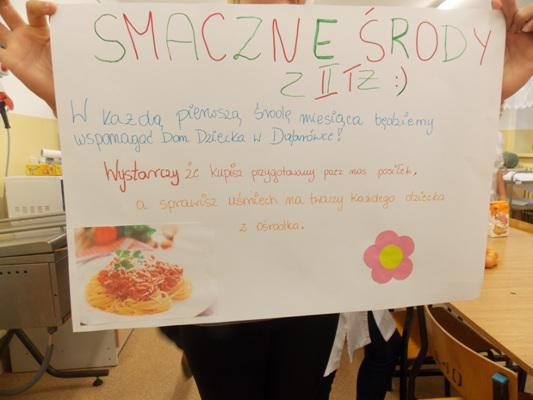 SMACZNE ŚRODY
Z II TŻ :)
W każdą pierwszą środę miesiąca będziemy
wspomagać Dom Dziecka w Dąbrówce!
Wystarczy że kupisz przygotowany pacz nas posiłek,
a sprawisz uśmiech na twarzy każdego dziecka
z ośrodka.